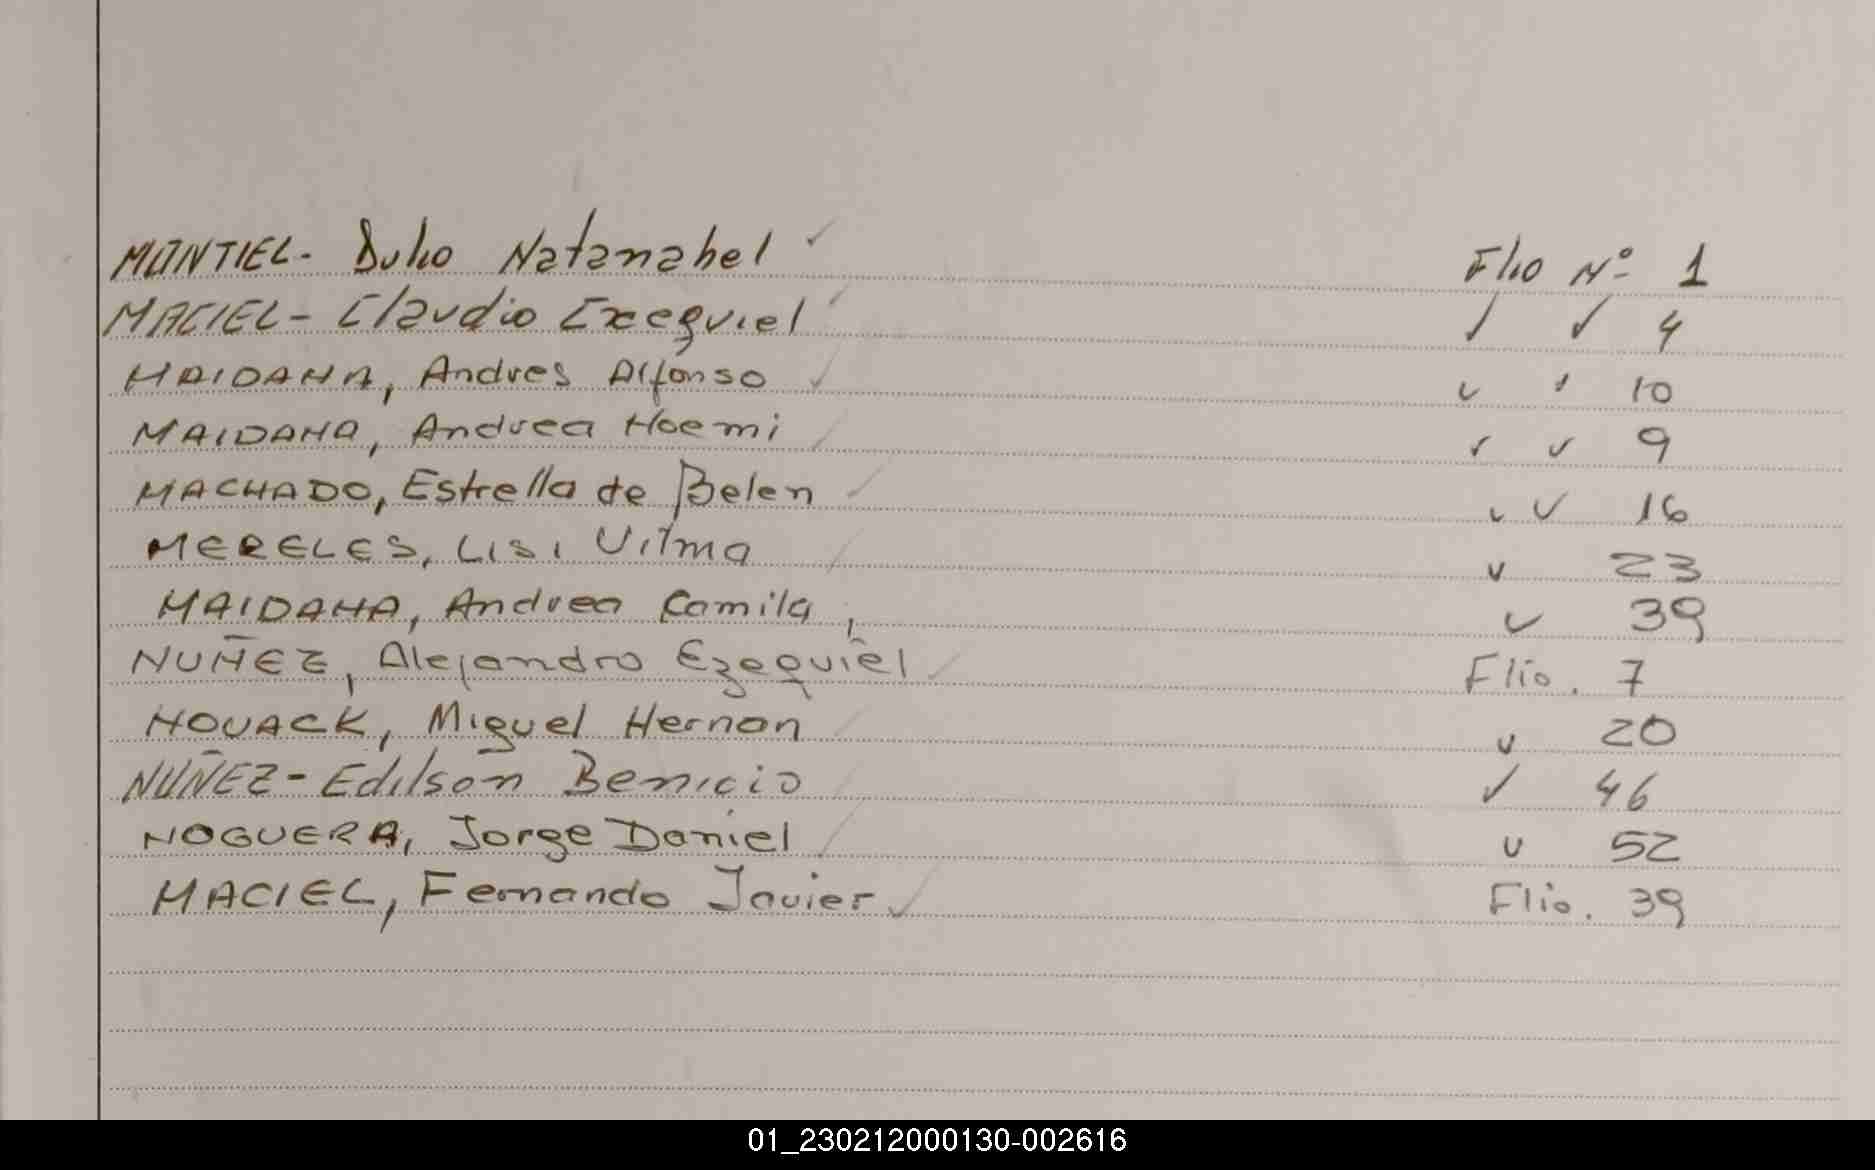 MONTIEL- Dulio Natanahel ✓ Flio Nº 1
MACIEL- Claudio Exequiel ✓ ✓ ✓ 4
MAIDANA, Andres Alfonso ✓ ✓ ✓ 10
MAIDANA, Andrea Noemi ✓ ✓ ✓ 9
MACHADO, Estrella de Belen ✓ ✓ ✓ 16
MERELES, Lisi Vilma ✓ ✓ 23
MAIDANA, Andrea Camila ✓ 39
NUÑEZ, Alejandro Ezequiel ✓ Flio. 7
NOVACK, Miguel Hernan ✓ ✓ 20
NUÑEZ- Edilson Benicio ✓ ✓ 46
NOGUERA, Jorge Daniel ✓ ✓ 52
MACIEL, Fernando Javier ✓ Flio. 39
01_230212000130-002616